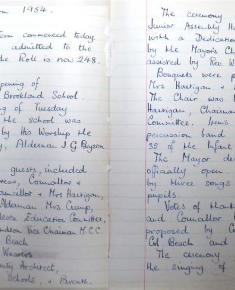 1954.
commenced today.
admitted to the
the Roll is now 248.
opening of
Brookland School
of Tuesday
the school was
by His Worship the
Alderman J G Pyson
guests, included
Councillor &
Councillor & Mrs Hartigan,
Alderman Mrs Crump,
Education Committee,
Vice Chairman M.C.C.
Beach
Architect,
Schools, & Parents.
The ceremony
Junior Assembly Ha
with a Dedication
by the Mayor's Cha
assisted by Rev. W
Bouquets were p
Mrs Hartigan &
The Chair was
Hartigan, Chairman
Committee. Items
percussion band
38 of the Infant
The Mayor de
officially open
by three songs
pupils.
Votes of thanks
and Councillor
proposed by C
Col Beach and
The ceremony
the singing of